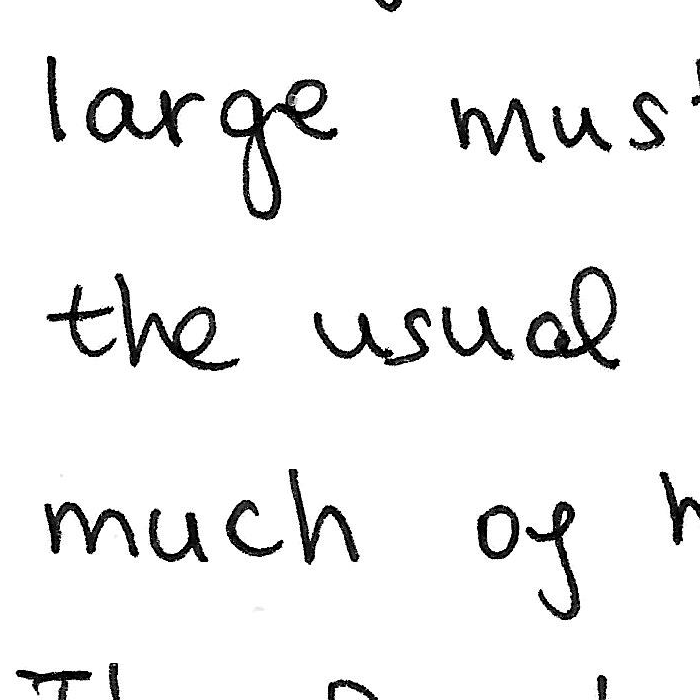 large mus
the usual
much of